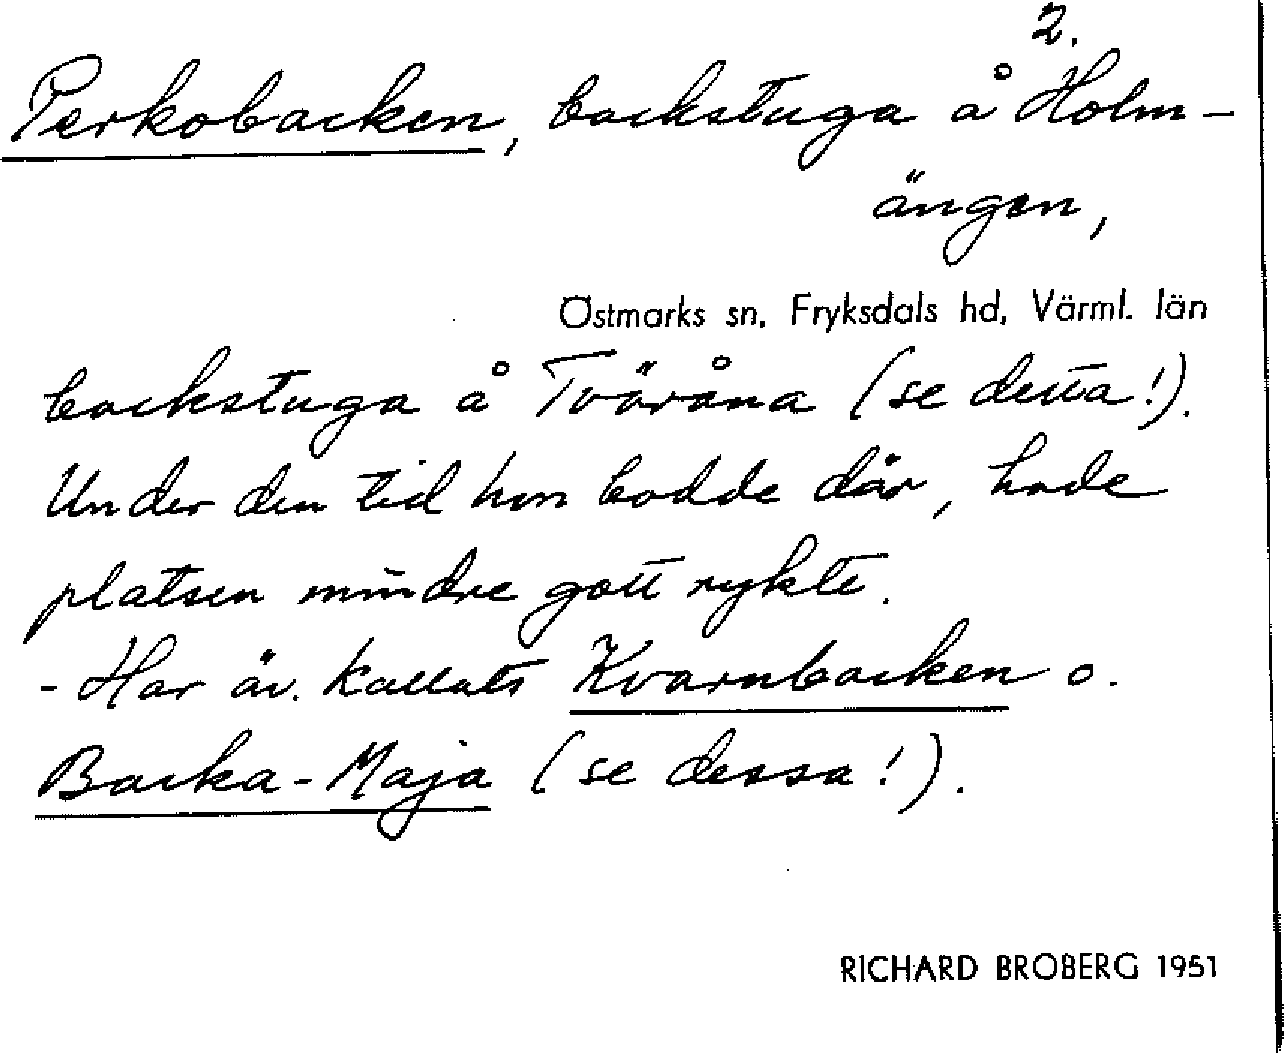 2.
Perkobacken, backstuga å Holm-
ängen,
Östmarks sn, Fryksdals hd, Värml. län
backstuga å Tväråna (se detta!).
Under den tid hon bodde där, hade
platsen mindre gott rykte.
- Har äv. kallats Kvarnbacken o.
Backa-Maja (se dessa!).
RICHARD BROBERG 1951